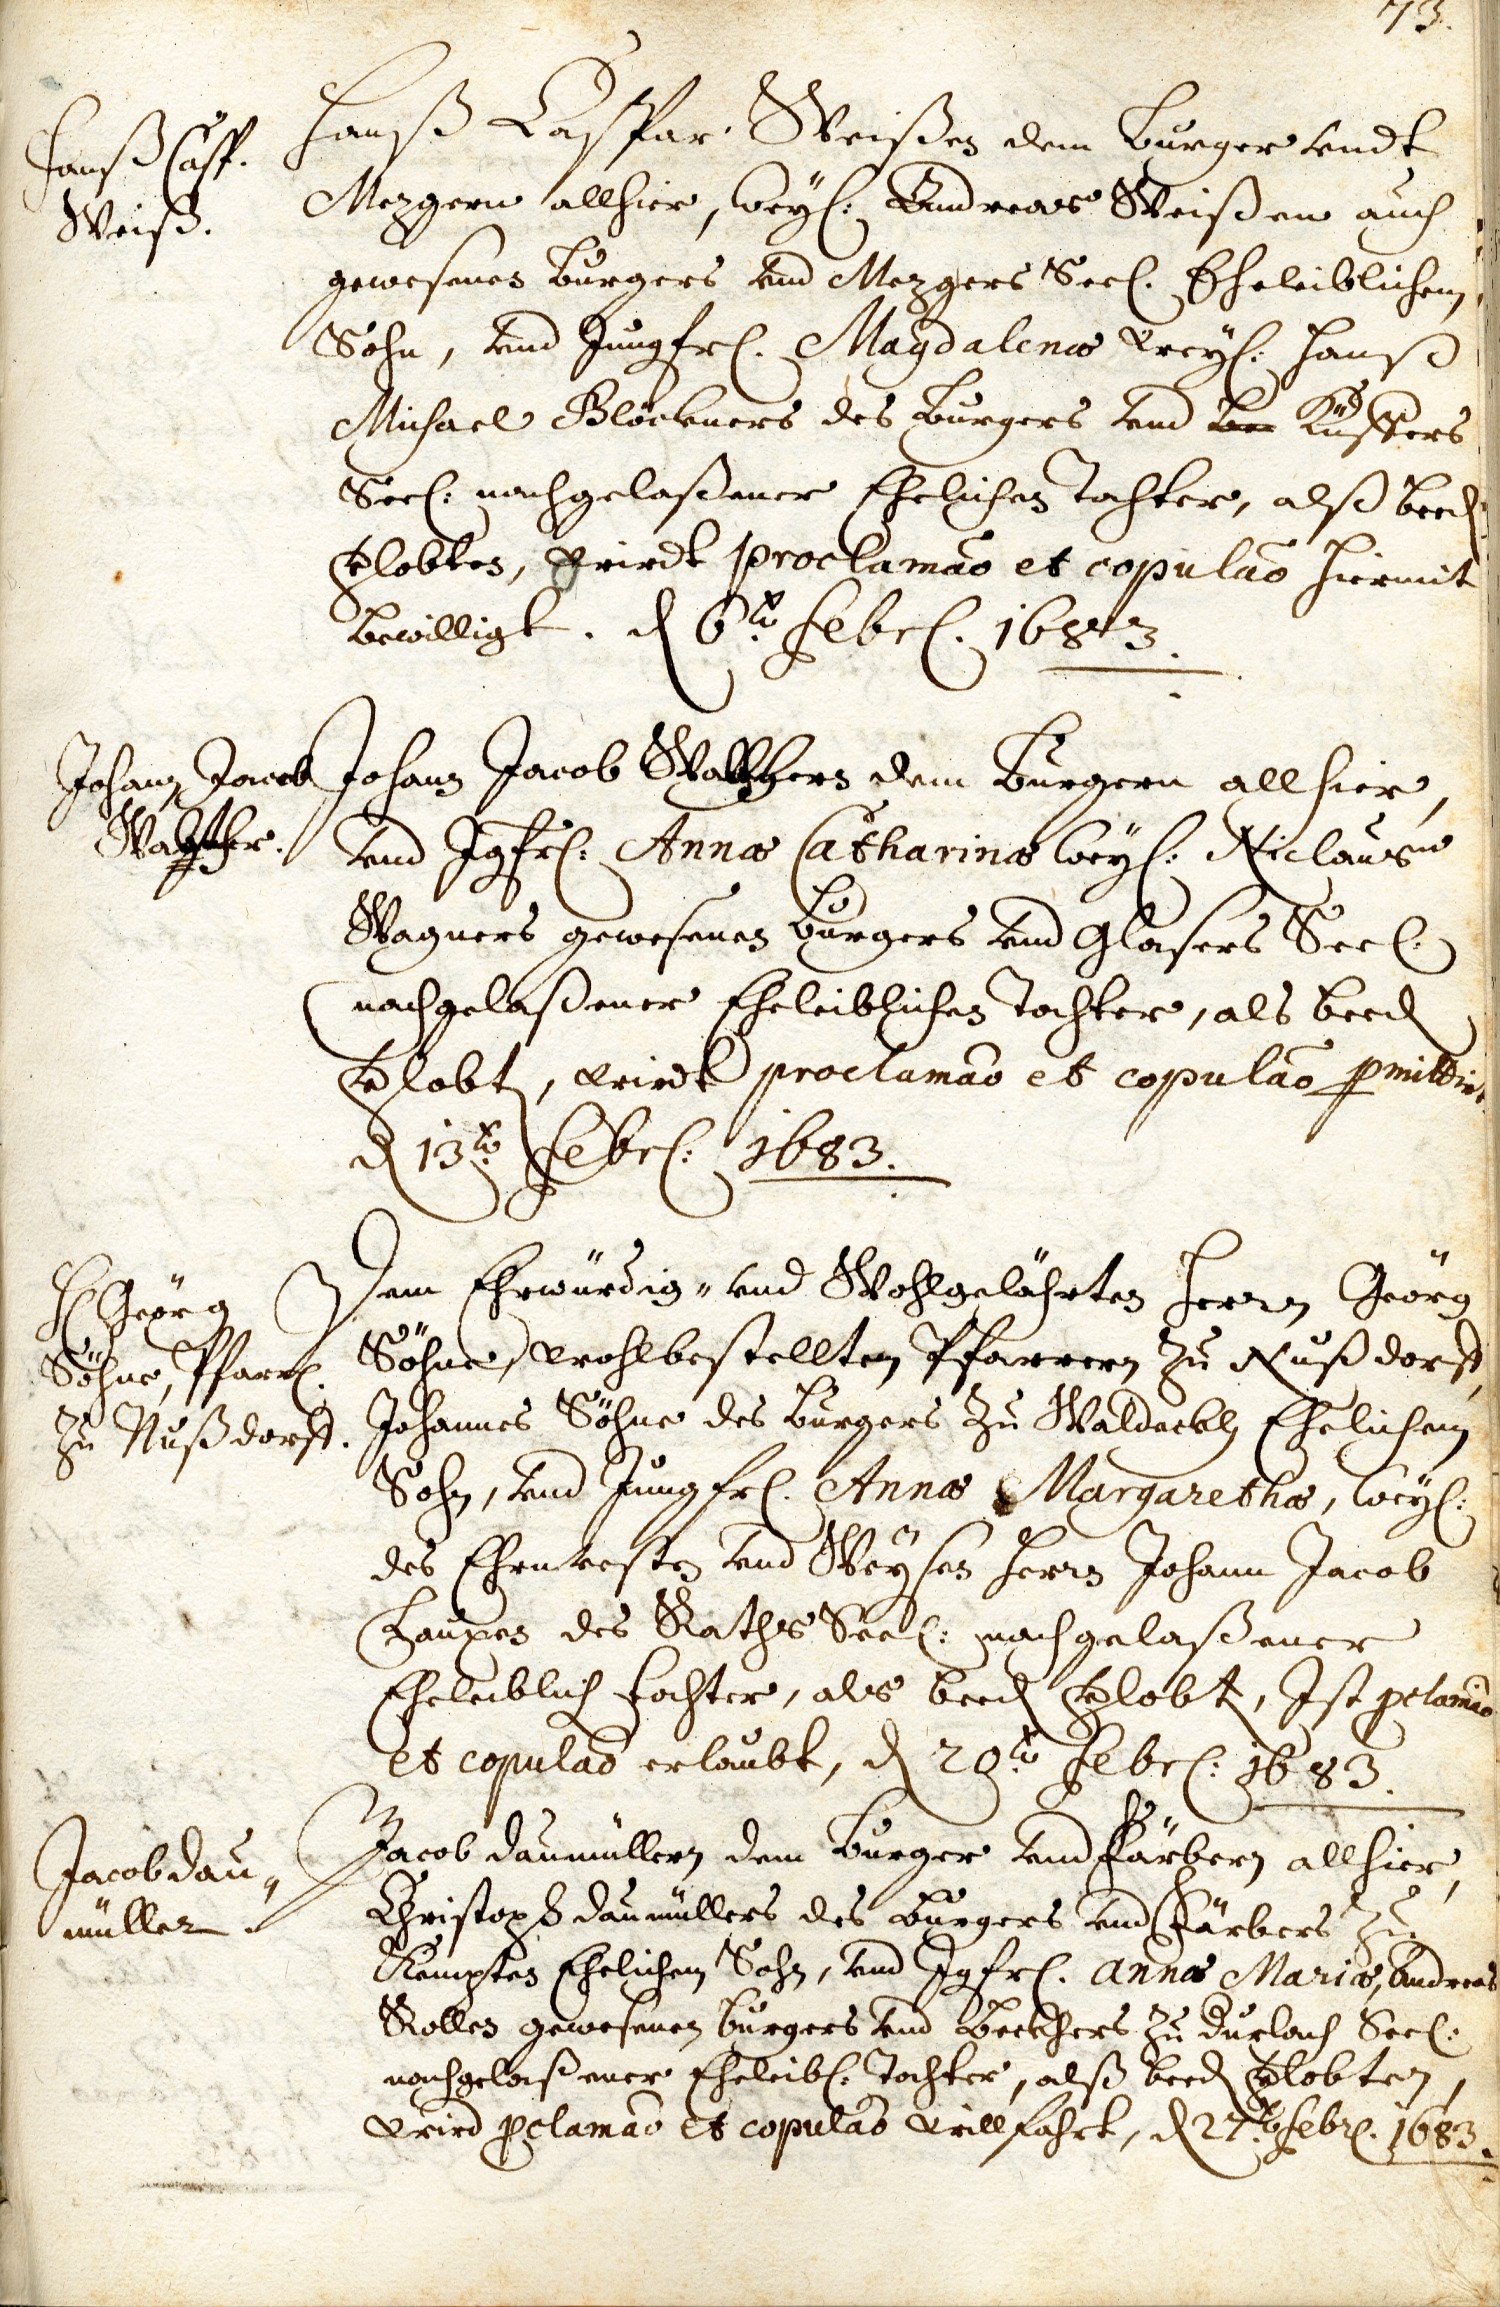 73.
Hanß Casp.
Weiß.
Hanß Caspar Weißen dem Burger undt
Mezgern allhier, weyl: Andreas Weißen auch
gewesenen Burgers und Mezgers Seel. Eheleiblichem
Sohn, und Jungfrl. Magdalenæ weyl: Hanß
Michael Blöckners des Burgers und Küffers
Seel: nachgelaßener Ehelichen Tochter, alß beed
Vlobten, wirdt proclamão et copulão hiermit
bewilligt. d 6.t Febrl. 1683.
Johann Jacob
Walther.
Johann Jacob Walthern dem Burgern allhier,
und Jgfrl: Annæ Catharinæ weyl: Niclaus
Wagners gewesenen Burgers und Glasers Seel:
nachgelaßener Eheleiblichen Tochter, als beed
Vlobt, wirdt proclamão et copulão pmittirt
d 13.t Febrl: 1683.
H Geörg
Söhne, Pfarrl.
zu Nußdorff.
Dem Ehrwürdig- und Wohlgelährten Herrn Geörg
Söhne, wohlbestellten Pfarrern zu Nußdorff,
Johannes Söhne des Burgers zu Waldeckh Ehelichem
Sohn, und Jungfrl. Annæ Margarethæ, weyl:
des Ehrnvesten und Weysen Herrn Johann Jacob
des Raths Seel: nachgelaßener
Eheleiblich Tochter, als beed Vlobt, Ist pclamão
et copulaõ erlaubt, d 20.t Febrl: 1683.
Jacob Dau-
müller.
Jacob Daumüllern dem Burger und Färbern allhier,
Christoph Daumüllers des Burgers und Färbers zu
Kempten Ehelichem Sohn, und Jgfrl. Annæ Mariæ, Andreas
Rollen gewesenen Burgers und Beckhers zu Durlach Seel:
nachgelaßener Eheleibl: Tochter, alß beed Vlobten,
wird pclamaõ et copulaõ willfahrt, d 27.t Febrl. 1683.